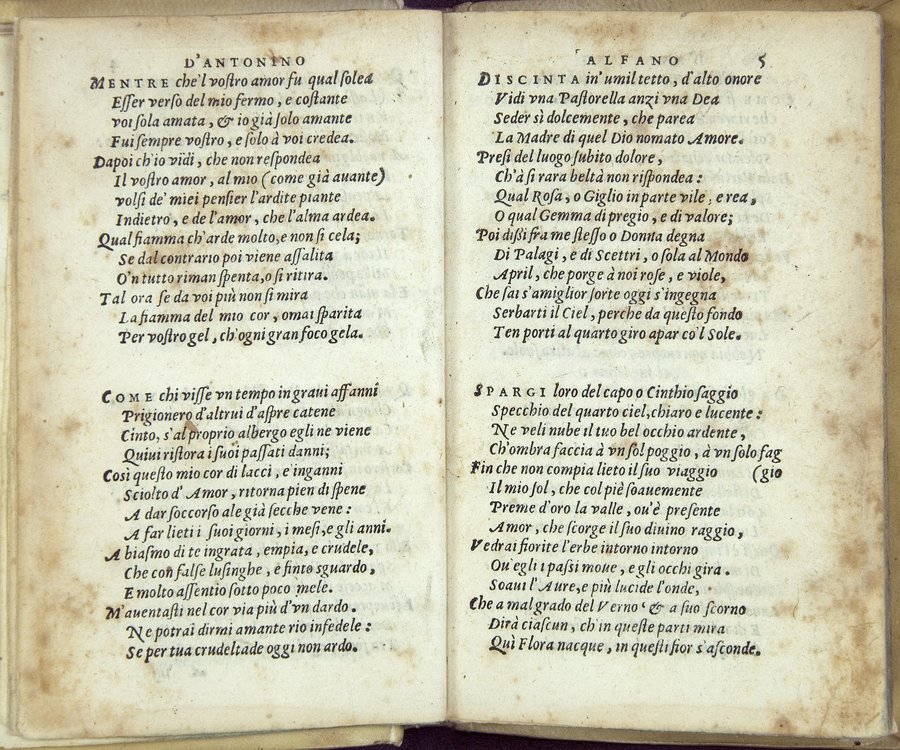 D'ANTONINO
MENTRE che'l vostro amor fu qual solea
Esser verso del mio fermo, e costante
voi sola amata, & io già solo amante
Fui sempre vostro, e solo à voi credea.
Dapoi ch'io vidi, che non respondea
Il vostro amor, al mio (come già auante)
volsi de' miei pensier l'ardite piante
Indietro, e de l'amor, che l'alma ardea.
Qual fiamma ch'arde molto, e non si cela;
Se dal contrario poi viene assalita
O'n tutto riman spenta, o si ritira.
Tal ora se da voi più non si mira
La fiamma del mio cor, omai sparita
Per vostro gel, ch'ogni gran foco gela.
COME chi visse vn tempo in graui affanni
Prigionero d'altrui d'aspre catene
Cinto, s'al proprio albergo egli ne viene
Quiui ristora i suoi passati danni;
Così questo mio cor di lacci, e inganni
Sciolto d'Amor, ritorna pien di spene
A dar soccorso ale già secche vene:
A far lieti i suoi giorni, i mesi, e gli anni.
A biasmo di te ingrata, empia, e crudele,
Che con false lusinghe, e finto sguardo,
E molto assentio sotto poco mele.
M'auentasti nel cor via più d'vn dardo.
Ne potrai dirmi amante rio infedele:
Se per tua crudeltade oggi non ardo.
ALFANO 5
DISCINTA in'umil tetto, d'alto onore
Vidi vna Pastorella anzi vna Dea
Seder sì dolcemente, che parea
La Madre di quel Dio nomato Amore.
Presi del luogo subito dolore,
Ch'à sì rara beltà non rispondea:
Qual Rosa, o Giglio in parte vile, e rea,
O qual Gemma di pregio, e di valore;
Poi dissi fra me stesso o Donna degna
Di Palagi, e di Scettri, o sola al Mondo
April, che porge à noi rose, e viole,
Che sai s'amiglior sorte oggi s'ingegna
Serbarti il Ciel, perche da questo fondo
Ten porti al quarto giro apar co'l Sole.
SPARGI loro del capo o Cinthio saggio
Specchio del quarto ciel, chiaro e lucente:
Ne veli nube il tuo bel occhio ardente,
Ch'ombra faccia à vn sol poggio, à vn solo fag
Fin che non compia lieto il suo viaggio (gio
Il mio sol, che col piè soauemente
Preme d'oro la valle, ou'è presente
Amor, che scorge il suo diuino raggio,
Vedrai fiorite l'erbe intorno intorno
Ou'egli i passi moue, e gli occhi gira.
Soaui l'Aure, e più lucide l'onde,
Che a mal grado del Verno & a suo scorno
Dirà ciascun, ch'in queste parti mira
Quì Flora nacque, in questi fior s'asconde.